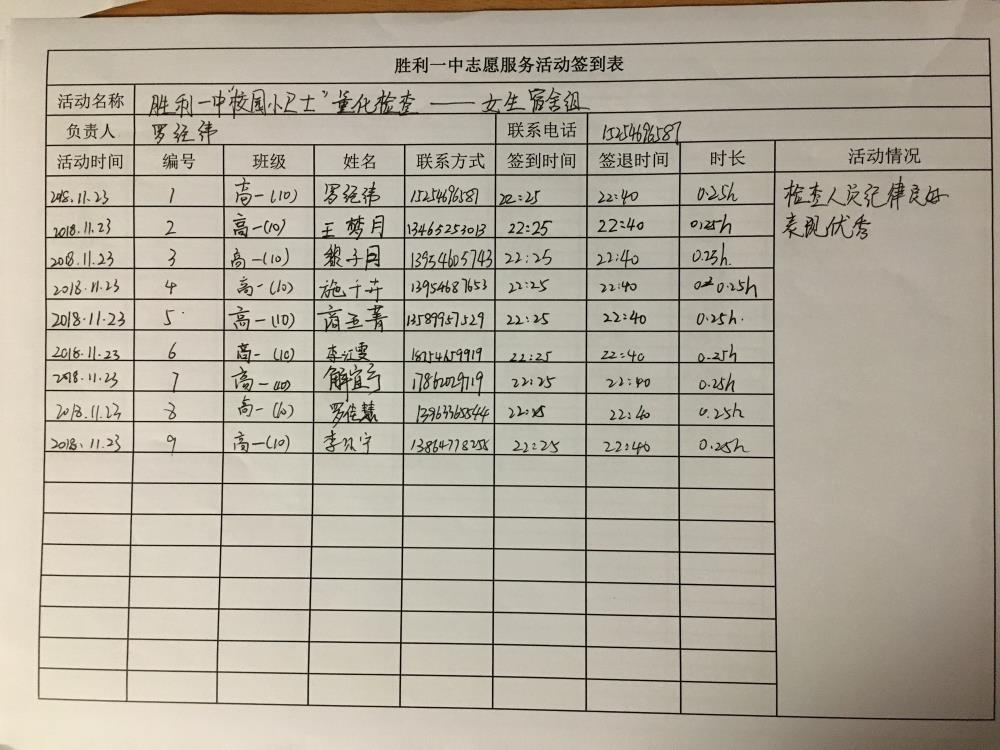 胜利一中志愿服务活动签到表
活动名称 胜利一中"校园小卫士"量化检查——女生宿舍组
负责人 罗经纬 联系电话 15254696587
活动时间 编号 班级 姓名 联系方式 签到时间 签退时间 时长 活动情况
2018.11.23 1 高一(10) 罗经纬 22:25 22:40 0.25h 检查人员纪律良好
2018.11.23 2 高一(10) 王梦月 13465253013 22:25 22:40 0.25h 表现优秀
2018.11.23 3 高一(10) 13954605743 22:25 22:40 0.25h.
2018.11.23 4 高一(10) 施千卉 13954687653 22:25 22:40 0.25h
2018.11.23 5 高一(10) 商玉菁 13589957529 22:25 22:40 0.25h.
2018.11.23 6 高一(10) 李红雯 18754659919 22:25 22:40 0.25h
2018.11.23 7 高一(10) 解宜 17862029719 22:25 22:40 0.25h
2018.11.23 8 高一(10) 罗佳慧 22:25 22:40 0.25h
2018.11.23 9 高一(10) 13864778255 22:25 22:40 0.25h